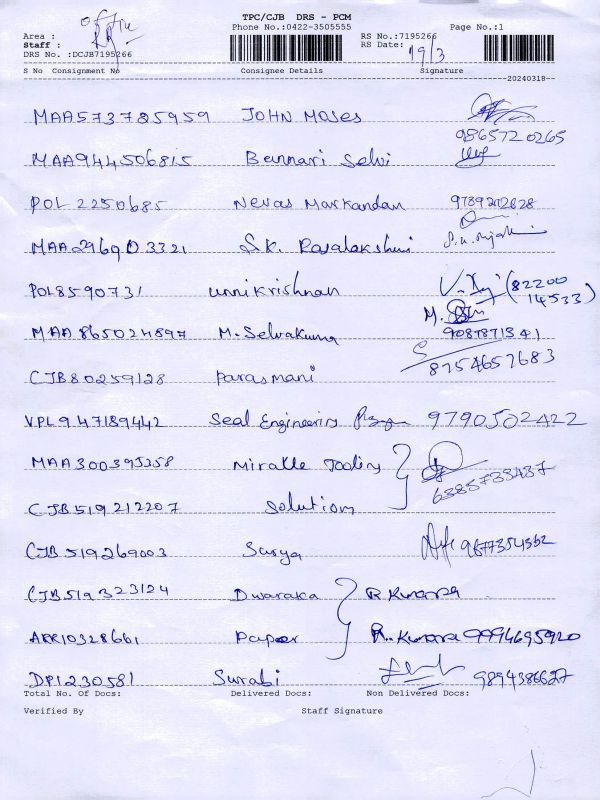 TPC/CJB DRS - PCM
Phone No.:0422-3505555
Page No.:1
Area :
Staff :
DRS No. :DCJB7195266
RS No.:7195266
RS Date: 19/3
S No Consignment No Consignee Details Signature
20240318
MAA573785959 JOHN Moses
9865720265
MAA944506815 Bannari Selvi
POL 2250685 Nevas Markandan 9789212628
MAA296903321 S.K. Rajalakshmi
POL8590731 unnikrishnan (82200 14533)
MAA 865024897 M. Selvakumar 9087871341
8754657683
CJB80259128 Parasmani
VPL947189442 Seal Engineering 9790502422
MAA300395258 Miracle Tooling
6385733437
CJB519212207 Solution
CJB519269003 Surya 9677354552
CJB519323124 Dwaraka R Kumara
AKR10328661 Paper R. Kumara 9994695920
DPI230581 Surabi 9894386627
Total No. Of Docs: Delivered Docs: Non Delivered Docs:
Verified By Staff Signature